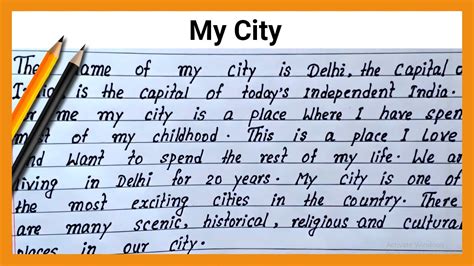 My City
The name of my city is Delhi, the Capital
India is the capital of today's Independent India.
me my city is a place Where I have spen
of my childhood. This is a place I Love
and Want to spend the rest of my life. We ar
living in Delhi for 20 years. My city is one of
the most exciting cities in the country. There
are many scenic, historical, religious and cultural
places in our city.
Activate Windows